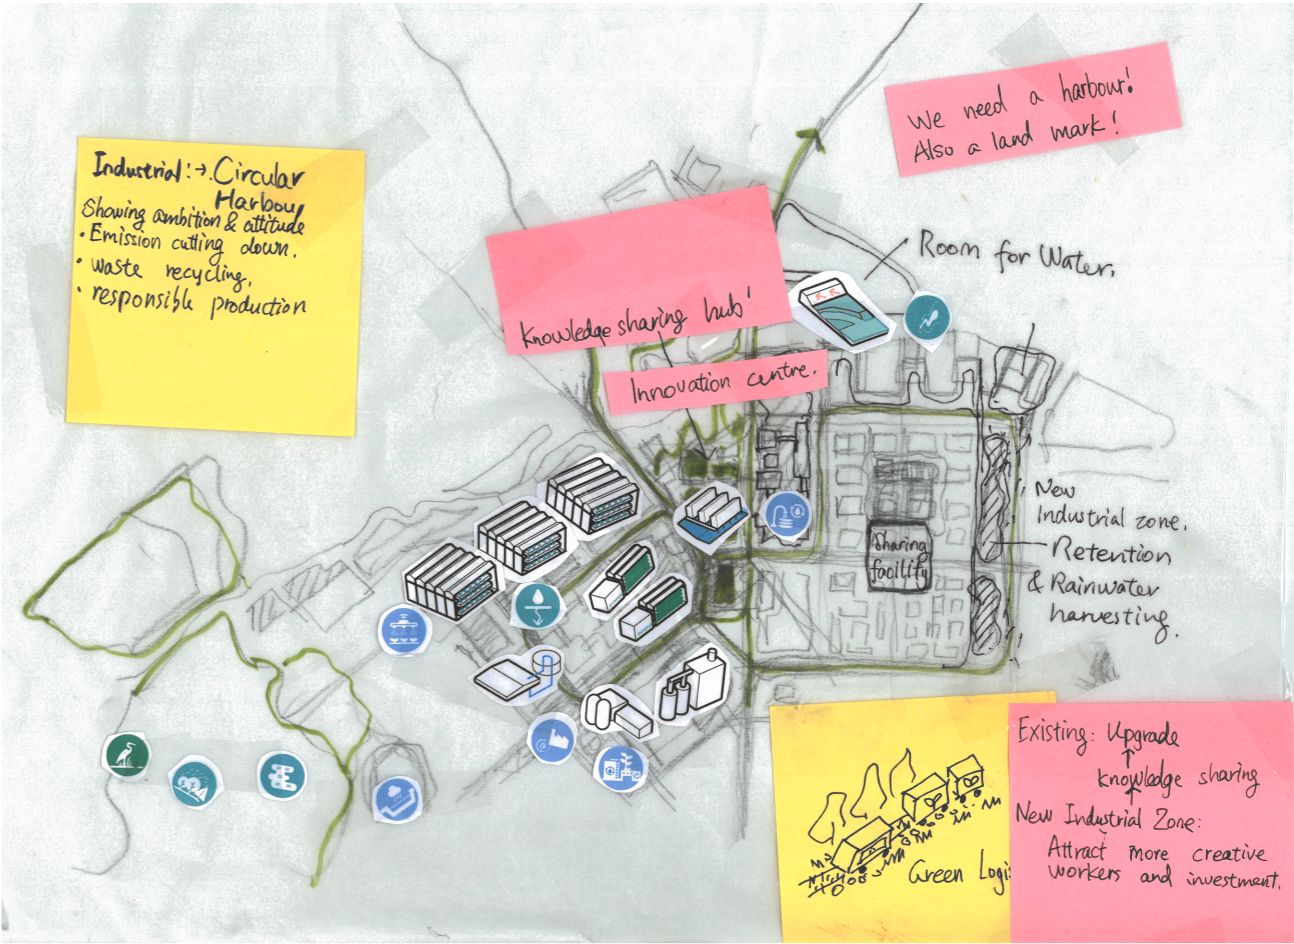 Industrial: → Circular
Harbour
Showing ambition & attitude
• Emission cutting down.
• waste recycling.
• responsible production
We need a harbour!
Also a land mark!
Knowledge sharing hub!
Innovation centre.
Room for Water.
Sharing
facility
New
Industrial zone.
Retention
& Rainwater
harvesting.
Green Logis
Existing: Upgrade
↑
knowledge sharing
↑
New Industrial Zone:
Attract more creative
workers and investment.